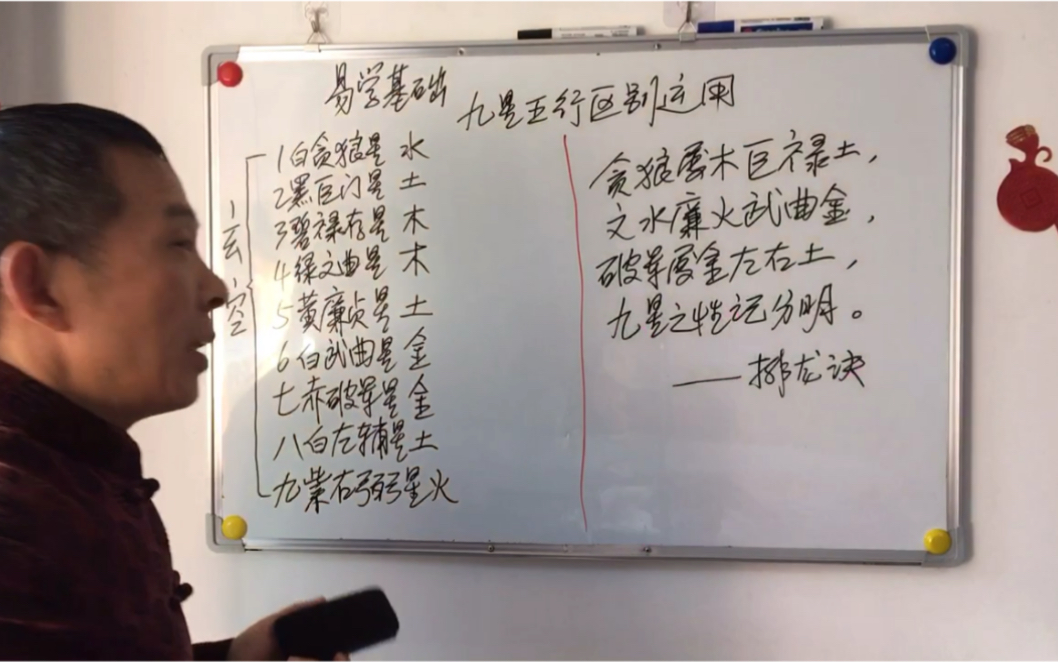 易学基础
九星五行区别运用
玄空
1白贪狼星 水
2黑巨门星 土
3碧禄存星 木
4绿文曲星 木
5黄廉贞星 土
6白武曲星 金
七赤破军星 金
八白左辅星土
九紫右弼星火
贪狼属木巨禄土，
文水廉火武曲金，
破军属金左右土，
九星之性记分明。
——排龙诀